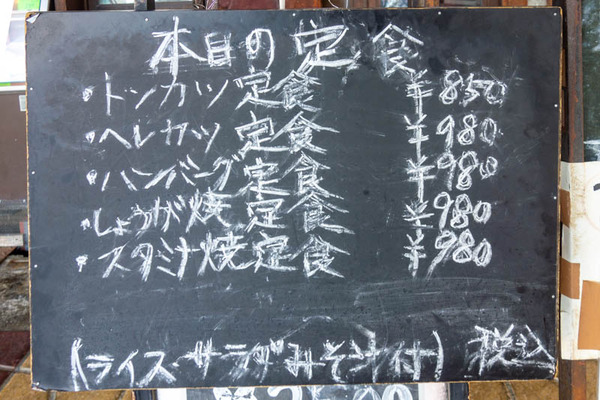 本日の定食
・トンカツ定食 ¥850
・ヘレカツ定食 ¥980
・ハンバーグ定食 ¥980
・しょうが焼定食 ¥980
・スタミナ焼定食 ¥980
(ライス・サラダ・みそ汁付) 税込